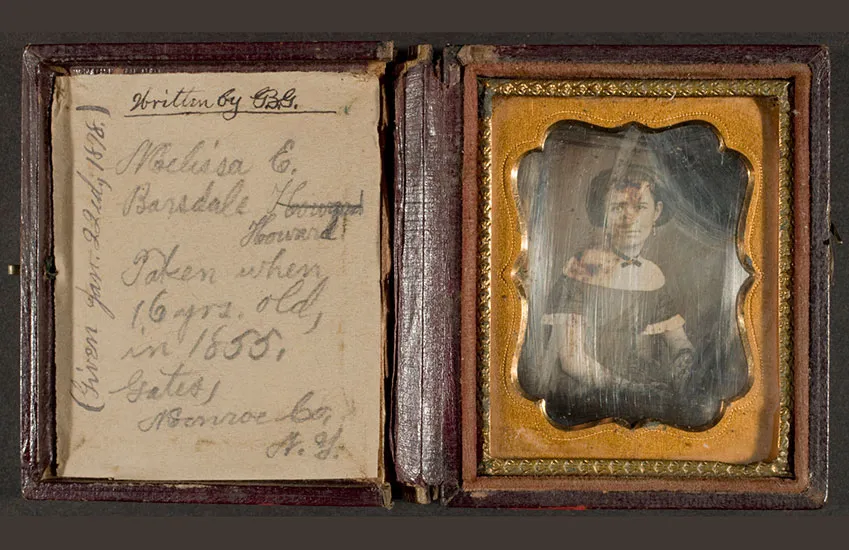 Written by G.B.G.
Melissa E.
Barsdale
Howard
Taken when
16 yrs. old,
in 1855.
Gates,
Monroe Co,
N.Y.
(Given Jan. 22dy 1898.)